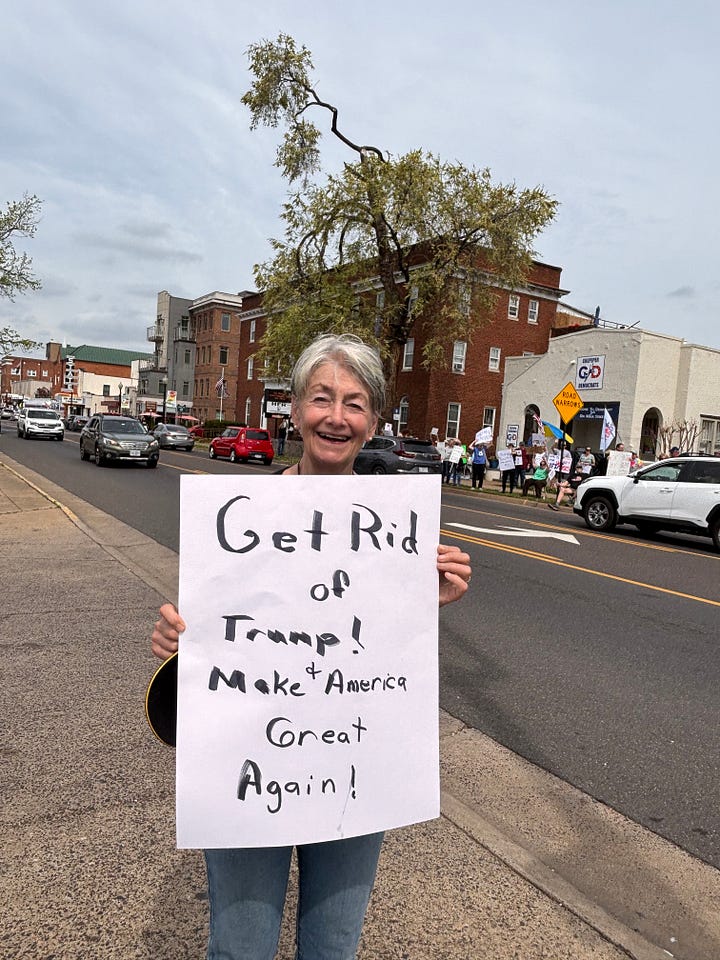 Get Rid
of
Trump!
&
Make America
Great
Again!
CULPEPER
DEMOCRATS
ROAD
NARROWS